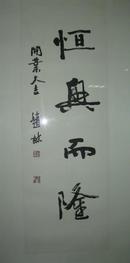 恒兴而隆
開業大吉